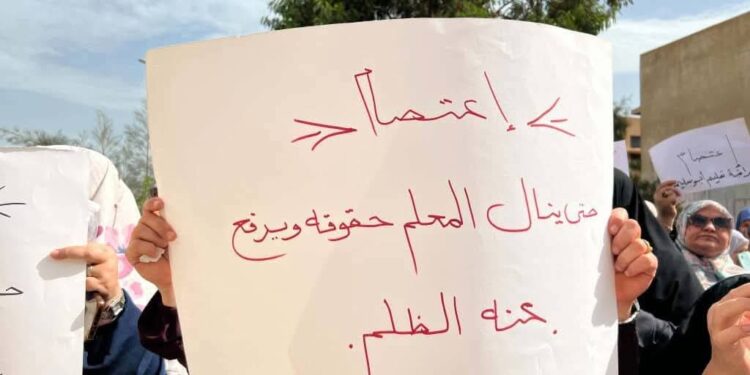 إعتصام
حتى ينال المعلم حقوقه ويرفع
عنه الظلم.
إعتصام